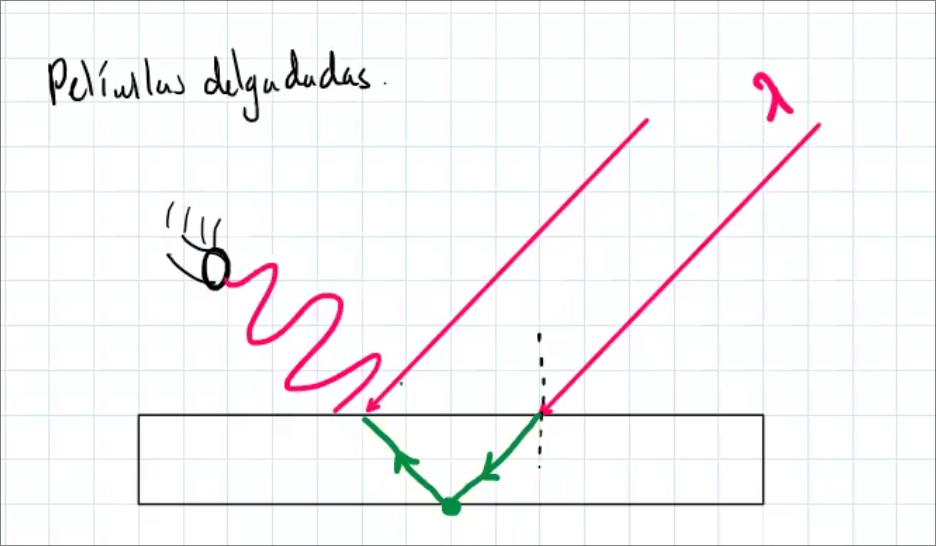 Películas delgadadas.
λ